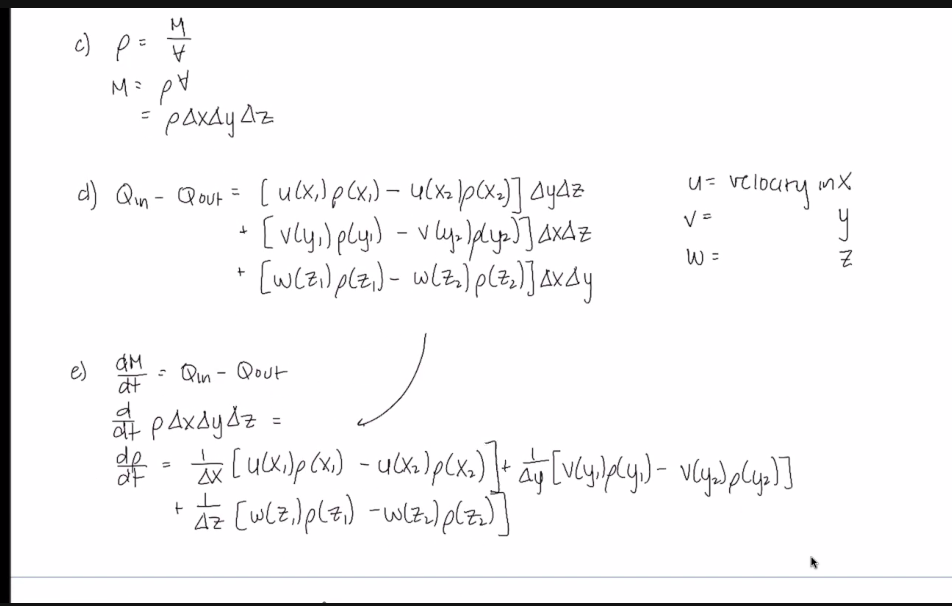 c) ρ = M/V
M = ρV
= ρΔxΔyΔz
d) Qin - Qout = [u(x₁)ρ(x₁) - u(x₂)ρ(x₂)] ΔyΔz
+ [v(y₁)ρ(y₁) - v(y₂)ρ(y₂)] ΔxΔz
+ [w(z₁)ρ(z₁) - w(z₂)ρ(z₂)] ΔxΔy
u = velocity in x
v = y
w = z
e) dM/dt = Qin - Qout
d/dt ρΔxΔyΔz =
dρ/dt = 1/Δx [u(x₁)ρ(x₁) - u(x₂)ρ(x₂)] + 1/Δy [v(y₁)ρ(y₁) - v(y₂)ρ(y₂)]
+ 1/Δz [w(z₁)ρ(z₁) - w(z₂)ρ(z₂)]